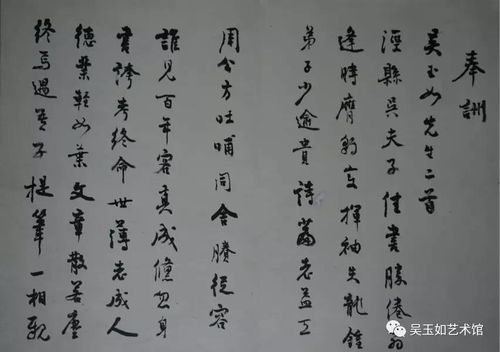 奉詶
吴玉如先生二首
涇縣吳夫子佳書勝倦翁
逢時膺豹變揮袖失龍鍾
弟子少逾貴詩篇老益工
周公方吐哺同舍賸從容
誰見百年容真成儵忽身
書誇考終命世薄老成人
德業輕如葉文章散若塵
終焉過吾子提筆一相親
吴玉如艺术馆